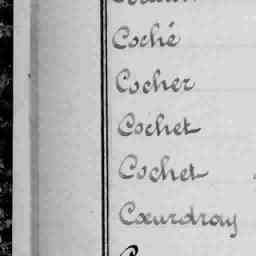 Coché
Cocher
Cochet
Cochet
Cœurdray